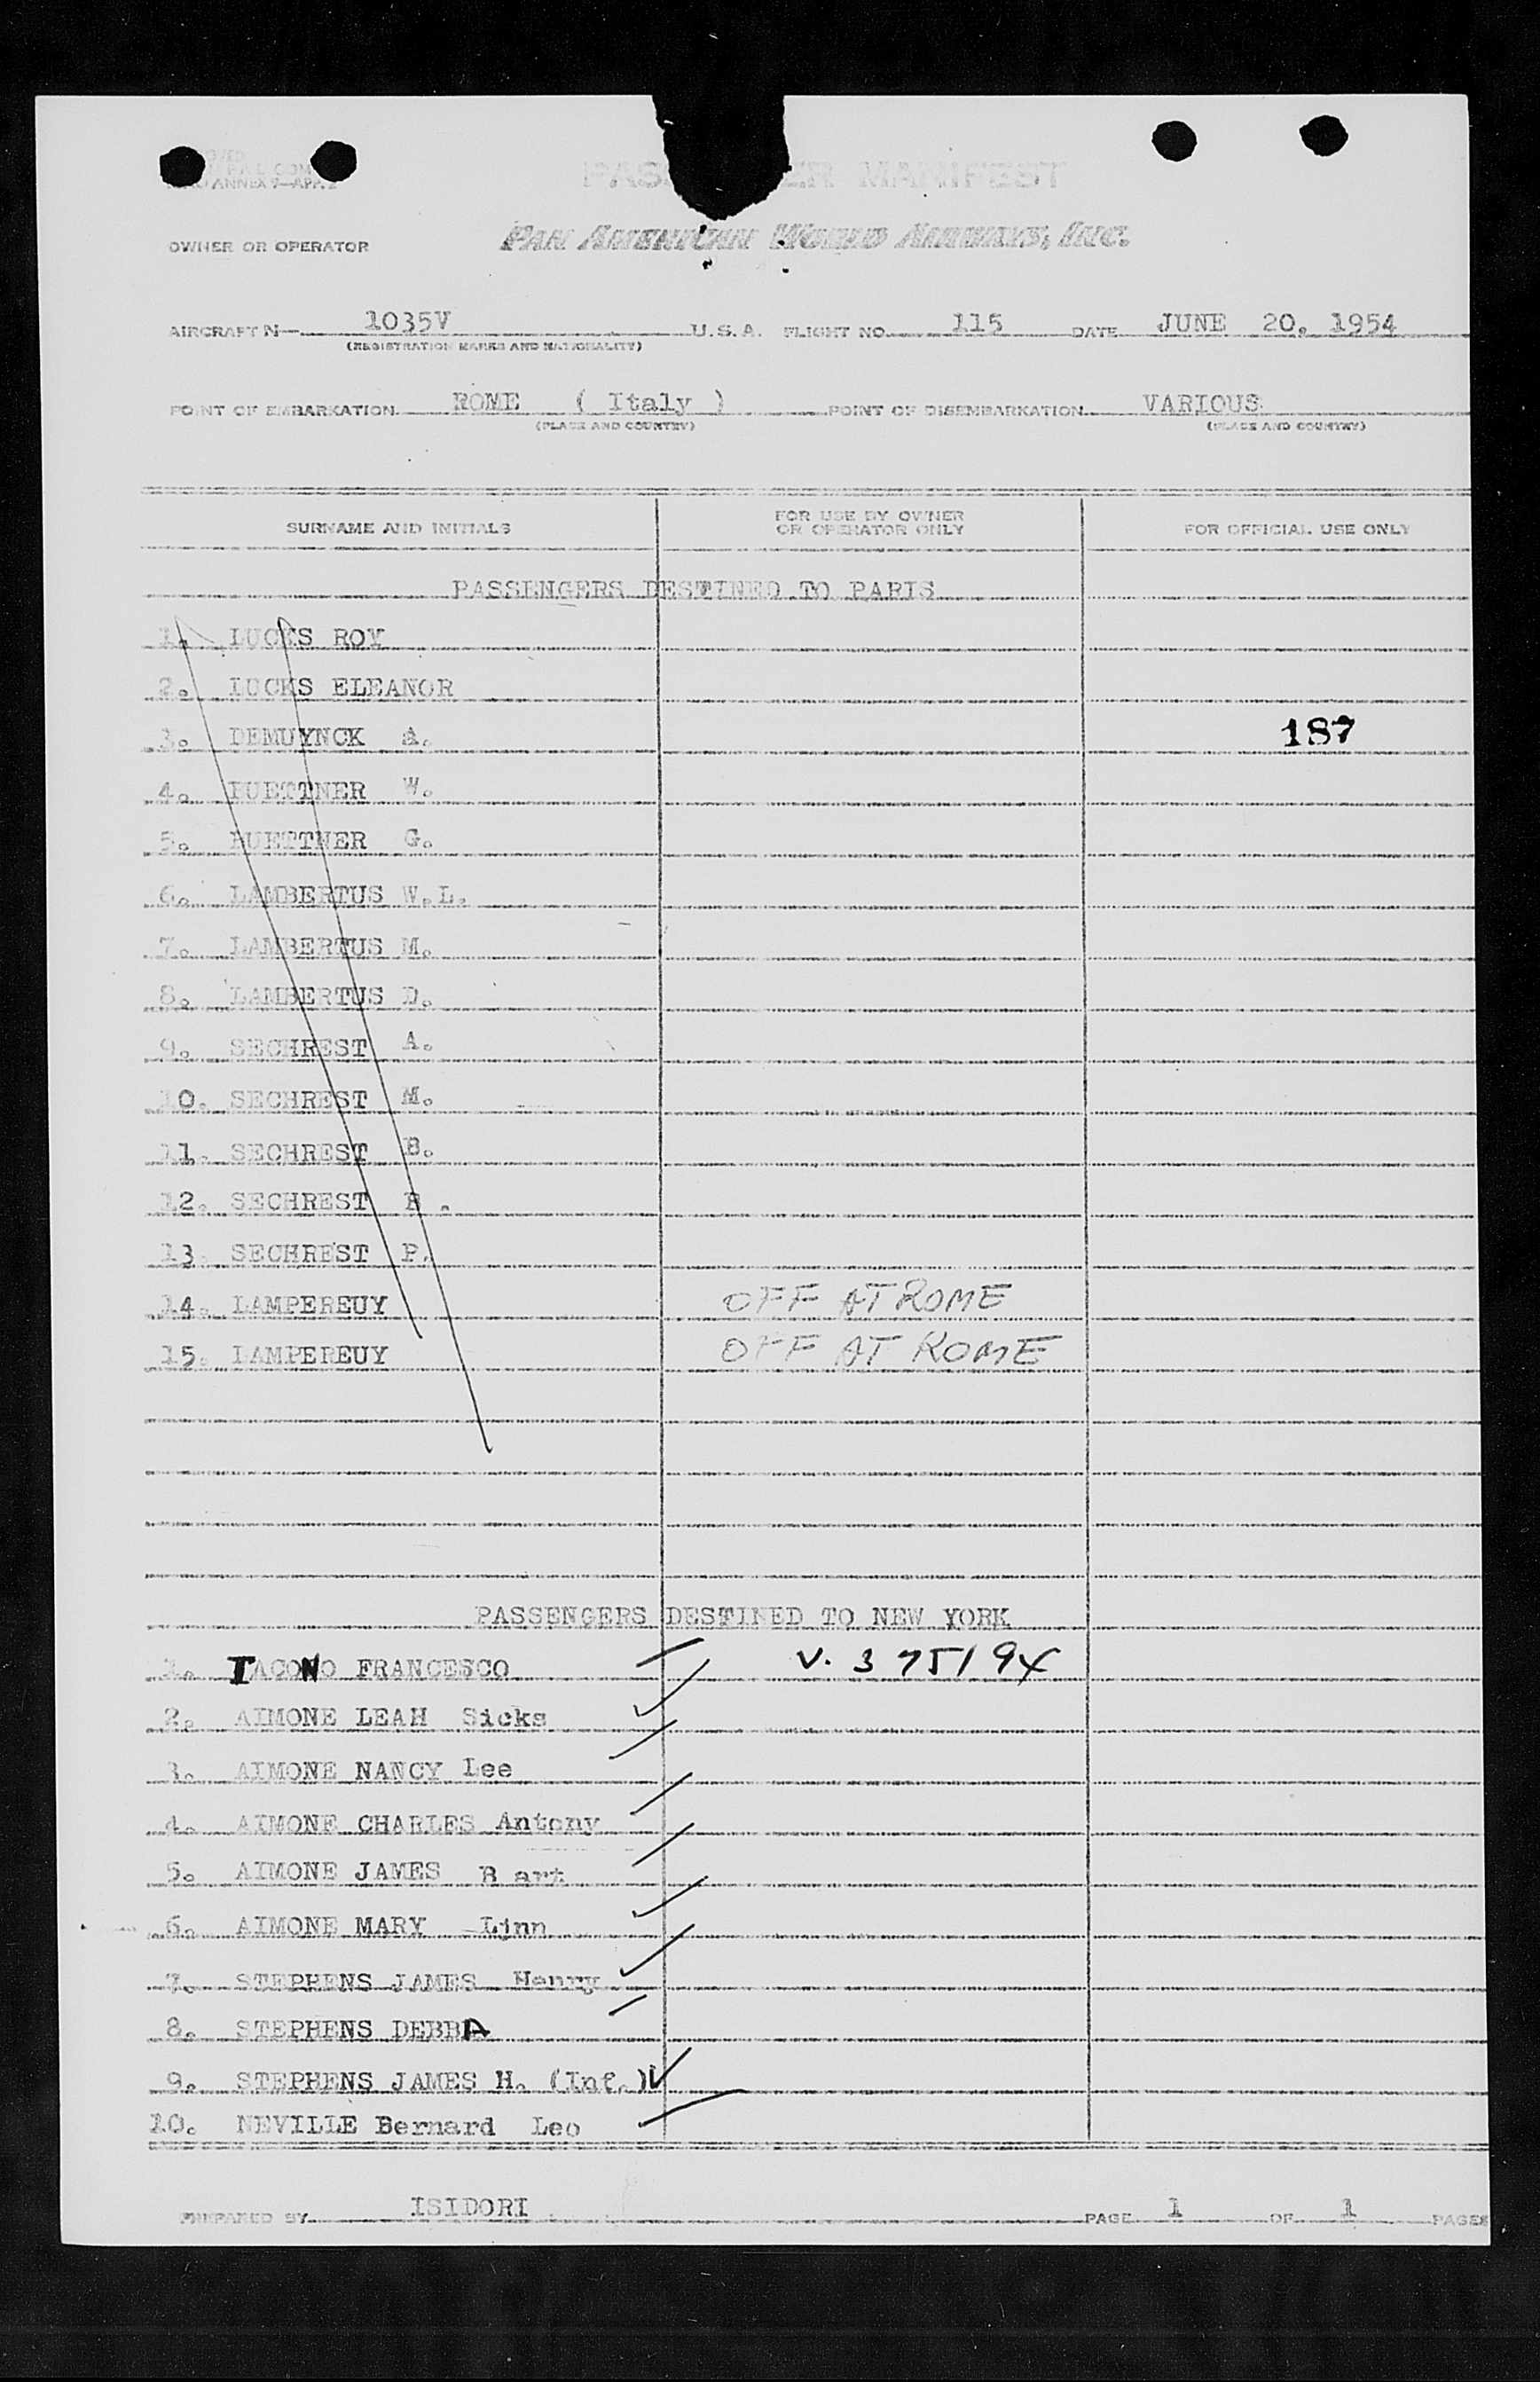 PAS ER MANIFEST
OWNER OR OPERATOR PAN AMERICAN WORLD AIRWAYS, INC.
AIRCRAFT N— 1035V U.S.A. FLIGHT NO. 115 DATE JUNE 20, 1954
(REGISTRATION MARKS AND NATIONALITY)
POINT OF EMBARKATION ROME ( Italy ) POINT OF DISEMBARKATION VARIOUS
(PLACE AND COUNTRY) (PLACE AND COUNTRY)
SURNAME AND INITIALS FOR USE BY OWNER OR OPERATOR ONLY FOR OFFICIAL USE ONLY
PASSENGERS DESTINED TO PARIS
1. LUCKS ROY
2. LUCKS ELEANOR
3. DEMUYNCK A. 187
4. BUETTNER W.
5. BUETTNER G.
6. LAMBERTUS W.L.
7. LAMBERTUS M.
8. LAMBERTUS D.
9. SECHREST A.
10. SECHREST M.
11. SECHREST B.
12. SECHREST R.
13. SECHREST P.
14. LAMPEREUY OFF AT ROME
15. LAMPEREUY OFF AT ROME
PASSENGERS DESTINED TO NEW YORK
1. IACONO FRANCESCO V. 375194
2. AIMONE LEAH Sicks
3. AIMONE NANCY Lee
4. AIMONE CHARLES Antony
5. AIMONE JAMES Bart
6. AIMONE MARY Linn
7. STEPHENS JAMES Henry
8. STEPHENS DEBBA
9. STEPHENS JAMES H. (Inf.)
10. NEVILLE Bernard Leo
PREPARED BY ISIDORI PAGE 1 OF 1 PAGES